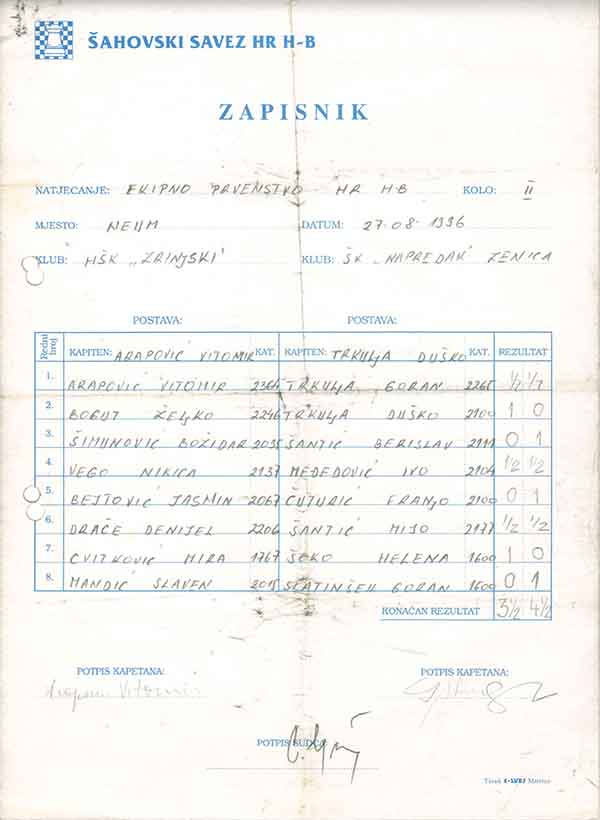 ŠAHOVSKI SAVEZ HR H-B
ZAPISNIK
NATJECANJE: EKIPNO PRVENSTVO HR HB KOLO: II
MJESTO: NEUM DATUM: 27-08-1996
KLUB: HŠK "ZRINJSKI" KLUB: ŠK "NAPREDAK" ZENICA
POSTAVA: POSTAVA:
Redni broj KAPITEN: ARAPOVIĆ VITOMIR KAT. KAPITEN: TRKULJA DUŠKO KAT. REZULTAT
1. ARAPOVIĆ VITOMIR TRKULJA GORAN 2265 1/2 1/2
2. BOGUT ŽELJKO 2246 TRKULJA DUŠKO 2100 1 0
3. ŠIMUNOVIĆ BOŽIDAR 2035 ŠANTIĆ BERISLAV 2111 0 1
4. VEGO NIKICA 2137 MEĐEDOVIĆ IVO 2104 1/2 1/2
5. BEJTOVIĆ JASMIN 2067 ČUTURIĆ FRANJO 2100 0 1
6. DRAČE DENIJEL 2206 ŠANTIĆ MIJO 2177 1/2 1/2
7. CVITKOVIĆ MIRA 1767 ŠOKO HELENA 1600 1 0
8. MANDIĆ SLAVEN 2015 SLATINŠEK GORAN 1600 0 1
KONAČAN REZULTAT 3 1/2 4 1/2
POTPIS KAPETANA: POTPIS KAPETANA:
Arapović Vitomir
POTPIS SUDCA:
Tisak S-SVEJ Mostar